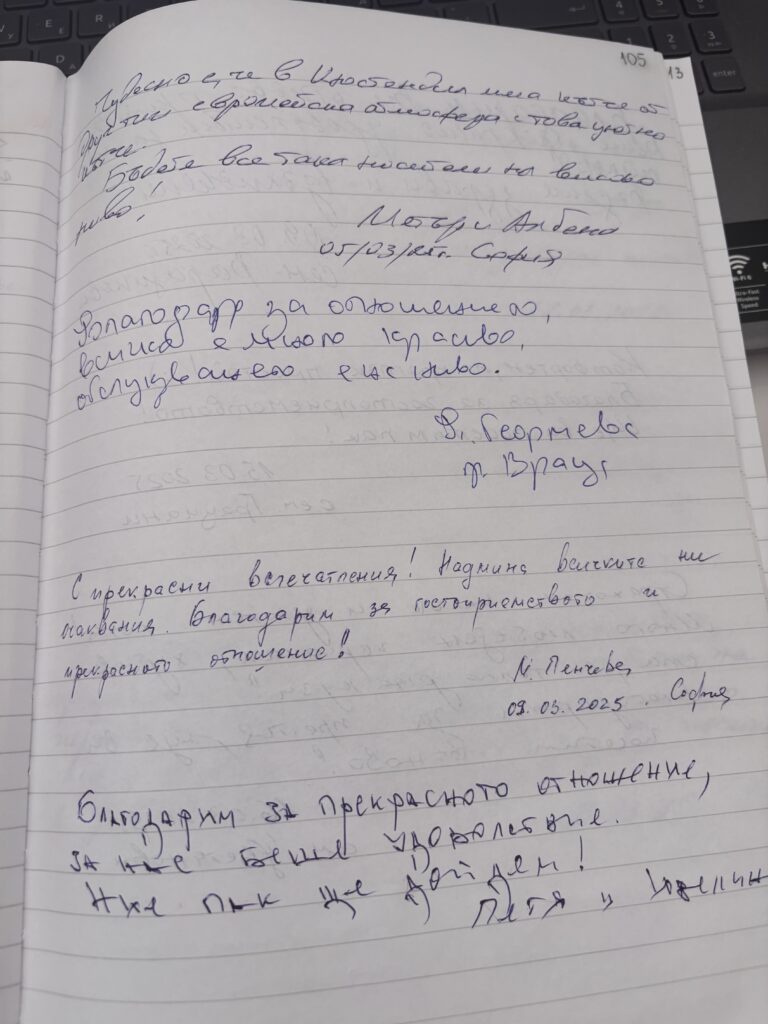 105
13
Чудесно е, че в Кюстендил има кътче от
друг тип с европейска атмосфера и това уютно
кътче.
Бъдете все така носители на високо
ниво!
Албена
05/03/25г. София
Благодаря за отношението,
всичко е много красиво,
обслужването е на ниво.
В. Георгиева
гр. Враца
С прекрасни впечатления! Надмина всичките ни
очаквания. Благодарим за гостоприемството и
прекрасното отношение!
М. Пенчева
09.03.2025. София
Благодарим за прекрасното отношение,
за нас беше удоволствие.
Ние пак ще дойдем!
Петя и
enter
Wi-Fi 6
Ultra-Fast
Wireless
Speed